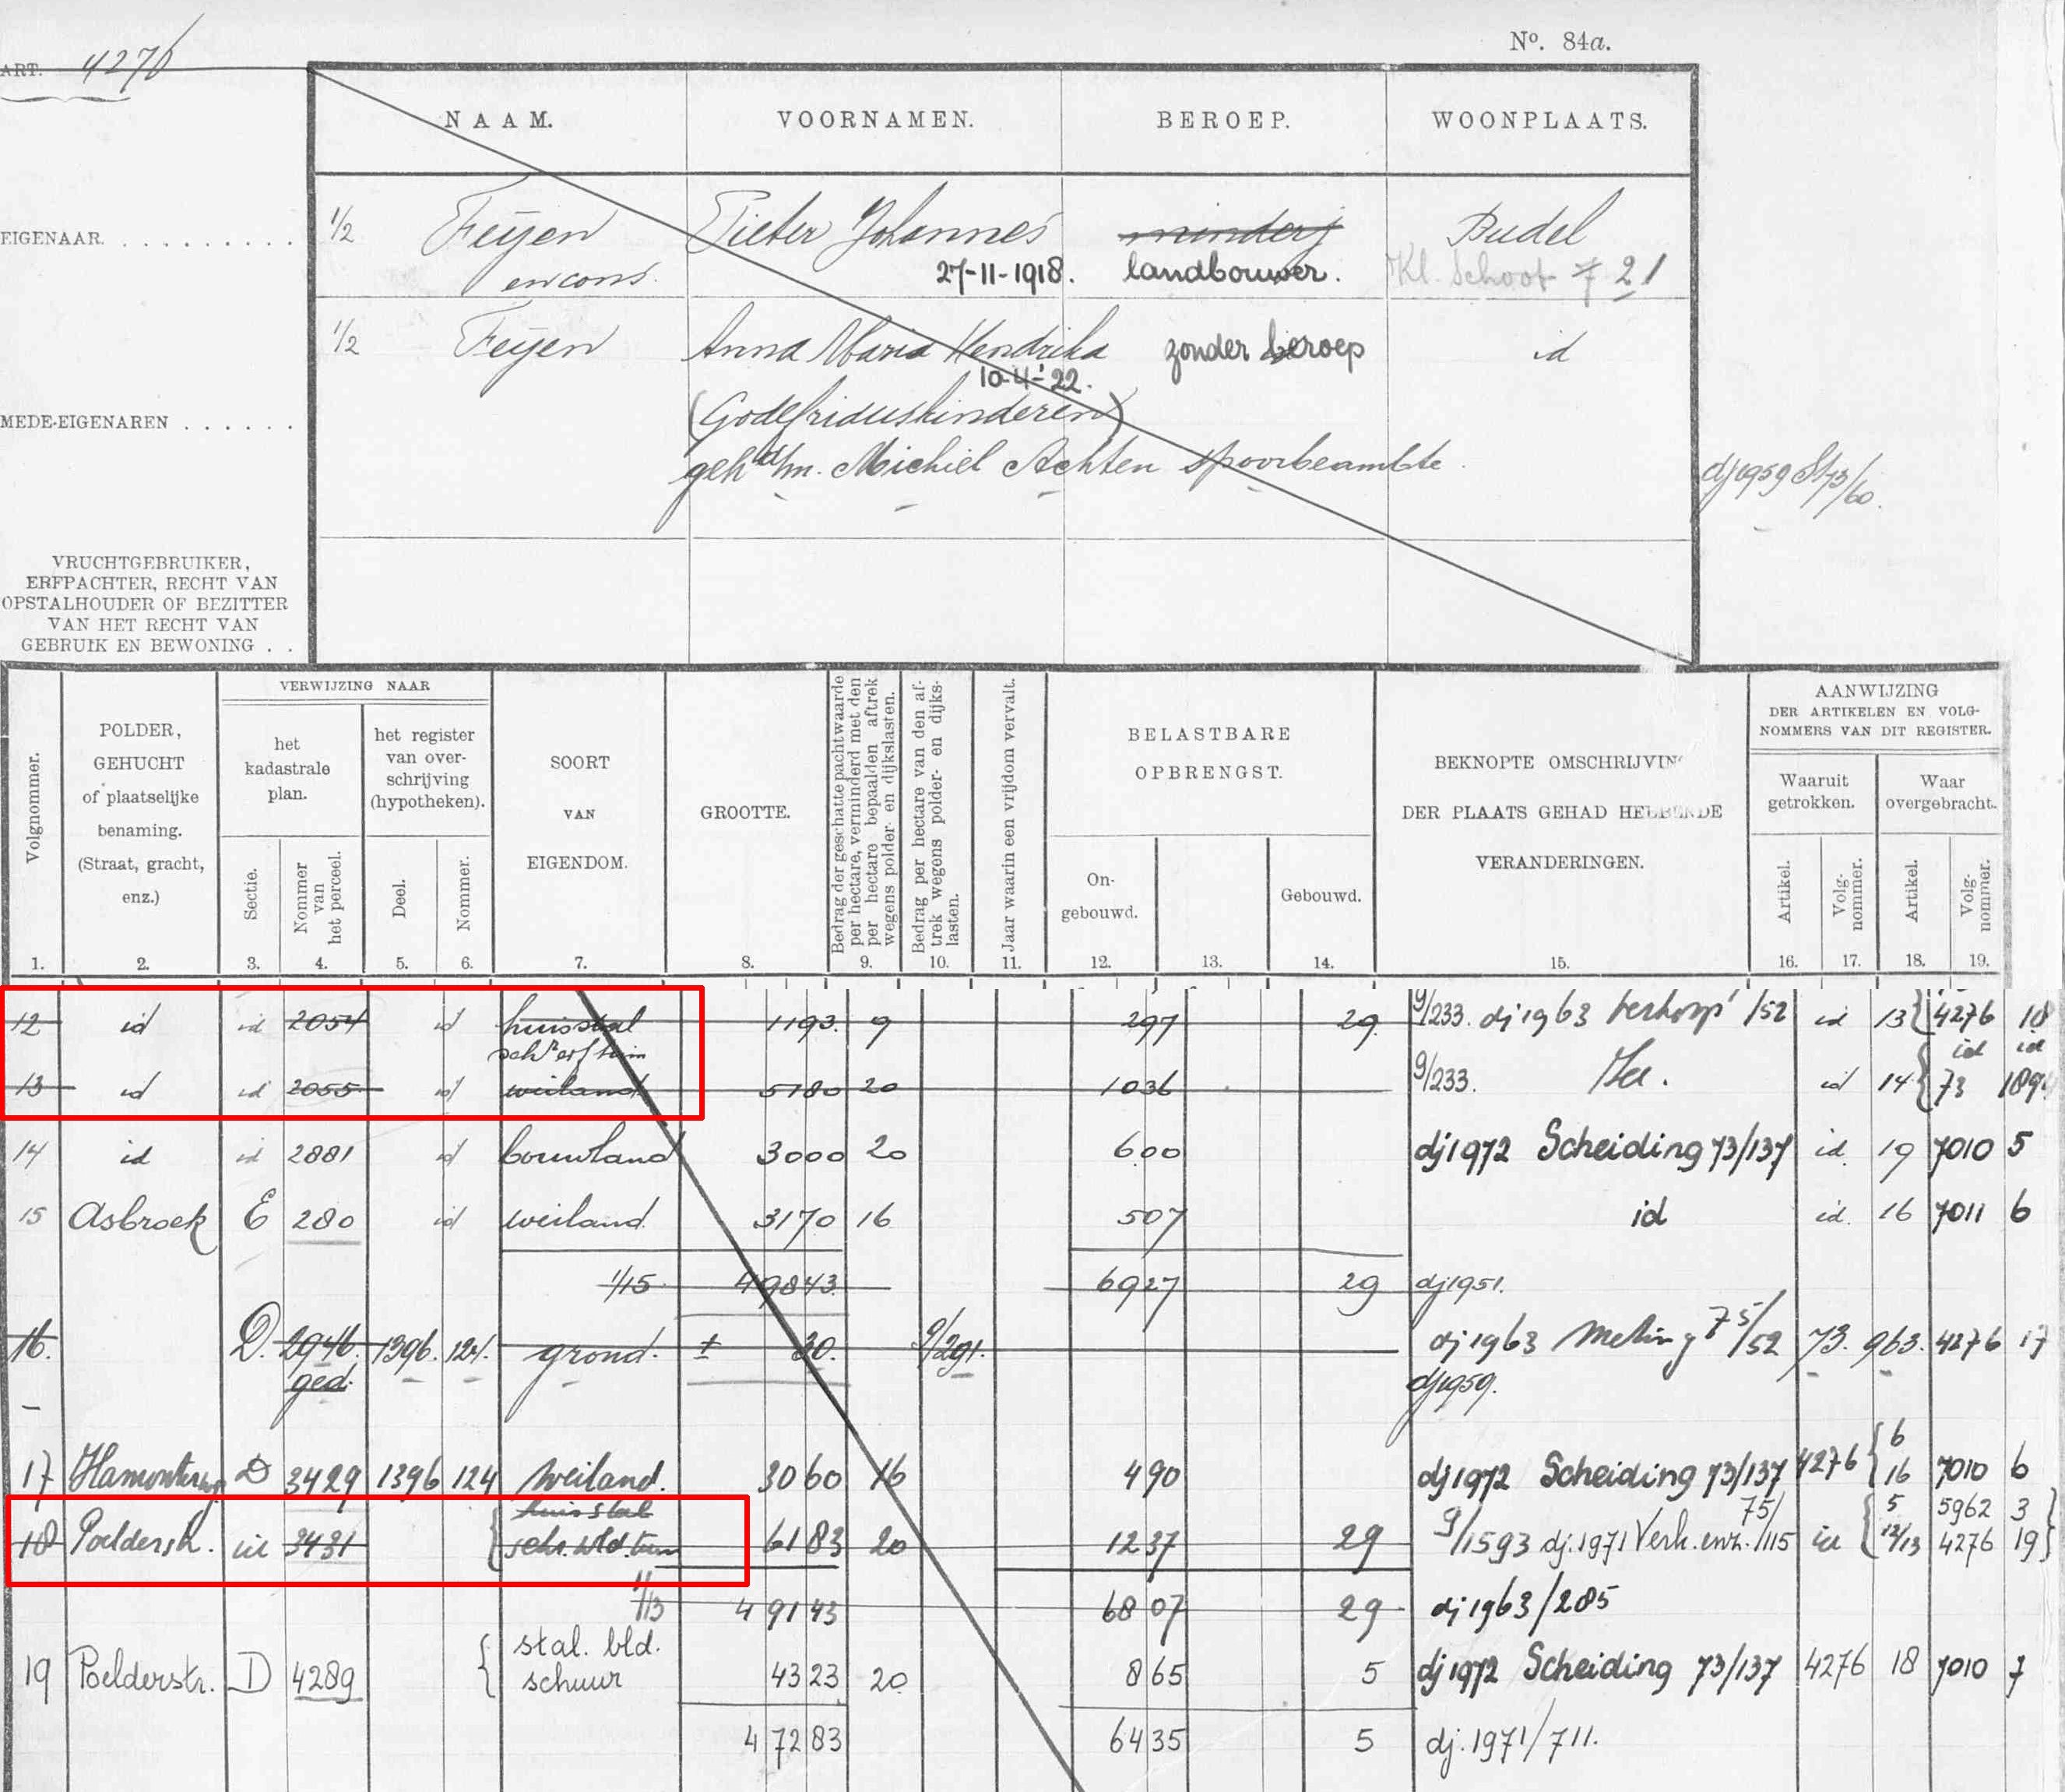 ART. 4276
Nº. 84a.
NAAM. VOORNAMEN. BEROEP. WOONPLAATS.
EIGENAAR. . . . . . . . . . . 1/2 Feijen Pieter Johannes minderj Budel
en cons. 27-11-1918. landbouwer. Kl. Schoot 7 21
1/2 Feijen Anna Maria Hendrika zonder beroep id
10-4-'22.
MEDE-EIGENAREN . . . . . . (Godefriduskinderen)
geh. m. Michiel Achten spoorbeambte.
dj 1959 St 73/60.
VRUCHTGEBRUIKER,
ERFPACHTER, RECHT VAN
OPSTALHOUDER OF BEZITTER
VAN HET RECHT VAN
GEBRUIK EN BEWONING . .
Volgnommer.
1.
POLDER,
GEHUCHT
of plaatselijke
benaming.
(Straat, gracht,
enz.)
2.
VERWIJZING NAAR
het
kadastrale
plan.
Sectie.
3.
Nommer
van
het perceel.
4.
het register
van over-
schrijving
(hypotheken).
Deel.
5.
Nommer.
6.
SOORT
VAN
EIGENDOM.
7.
GROOTTE.
8.
Bedrag der geschatte pachtwaarde
per hectare, verminderd met den
per hectare bepaalden aftrek
wegens polder- en dijkslasten.
9.
Bedrag per hectare van den af-
trek wegens polder- en dijks-
lasten.
10.
Jaar waarin een vrijdom vervalt.
11.
BELASTBARE
OPBRENGST.
On-
gebouwd.
12.
13.
Gebouwd.
14.
BEKNOPTE OMSCHRIJVING
DER PLAATS GEHAD HEBBENDE
VERANDERINGEN.
15.
AANWIJZING
DER ARTIKELEN EN VOLG-
NOMMERS VAN DIT REGISTER.
Waaruit
getrokken.
Artikel.
16.
Volg-
nommer.
17.
Waar
overgebracht.
Artikel.
18.
Volg-
nommer.
19.
12 id id 2054 id huis stal 1193. 9 297 29. 9/233. dj 1963 /52 id 13 { 4276 18
sch^r erf tuin id id
13 id id 2055 id weiland 5180 20 1036 9/233. id 14 { 73
14 id id 2881 id bouwland 3000 20 600 dj 1972 Scheiding 73/137 id. 19 7010 5
15 Asbroek E 280 id weiland 3170 16 507 id id. 16 7011 6
1/15 49843. 6927 29 dj 1951.
16. D. 2946. 1396. 124. grond. ± 30. 9/291. dj 1963 Meting 75/52 73. 963. 4276 17
ged. dj 1959.
17 D 3429 1396 124 weiland. 3060 16 490 dj 1972 Scheiding 73/137 4276 { 6 16 7010 6
huis stal 75/ 5 5962 3
18 Poelderstr. id 3431 { schr. wld. tuin 6183 20 1237 29 9/1593 dj. 1971 Verk. enz. /115 id { 12/13 4276 19 }
1/13 49143 6807 29 dj 1963/285
stal. bld.
19 Poelderstr. D 4289 { schuur 4323 20 865 5 dj 1972 Scheiding 73/137 4276 18 7010 7
47283 6435 5 dj. 1971/711.